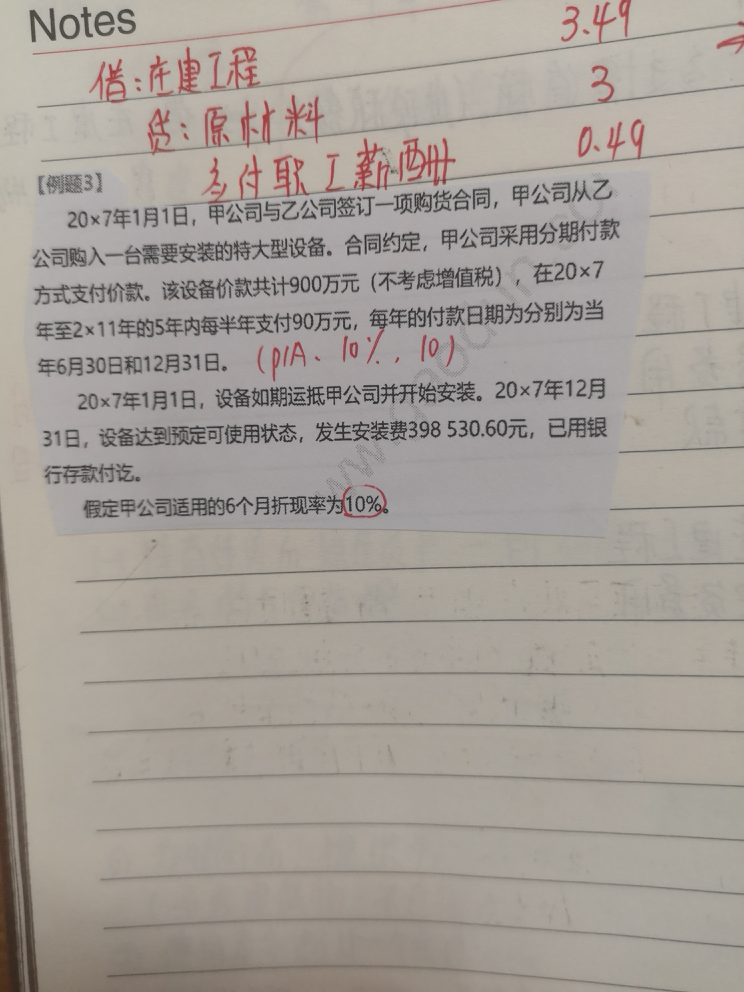 Notes
借:在建工程 3.49
贷:原材料 3
应付职工薪酬 0.49
【例题3】
20×7年1月1日，甲公司与乙公司签订一项购货合同，甲公司从乙
公司购入一台需要安装的特大型设备。合同约定，甲公司采用分期付款
方式支付价款。该设备价款共计900万元（不考虑增值税），在20×7
年至2×11年的5年内每半年支付90万元，每年的付款日期为分别为当
年6月30日和12月31日。 (P/A、10%，10)
20×7年1月1日，设备如期运抵甲公司并开始安装。20×7年12月
31日，设备达到预定可使用状态，发生安装费398 530.60元，已用银
行存款付讫。
假定甲公司适用的6个月折现率为10%。